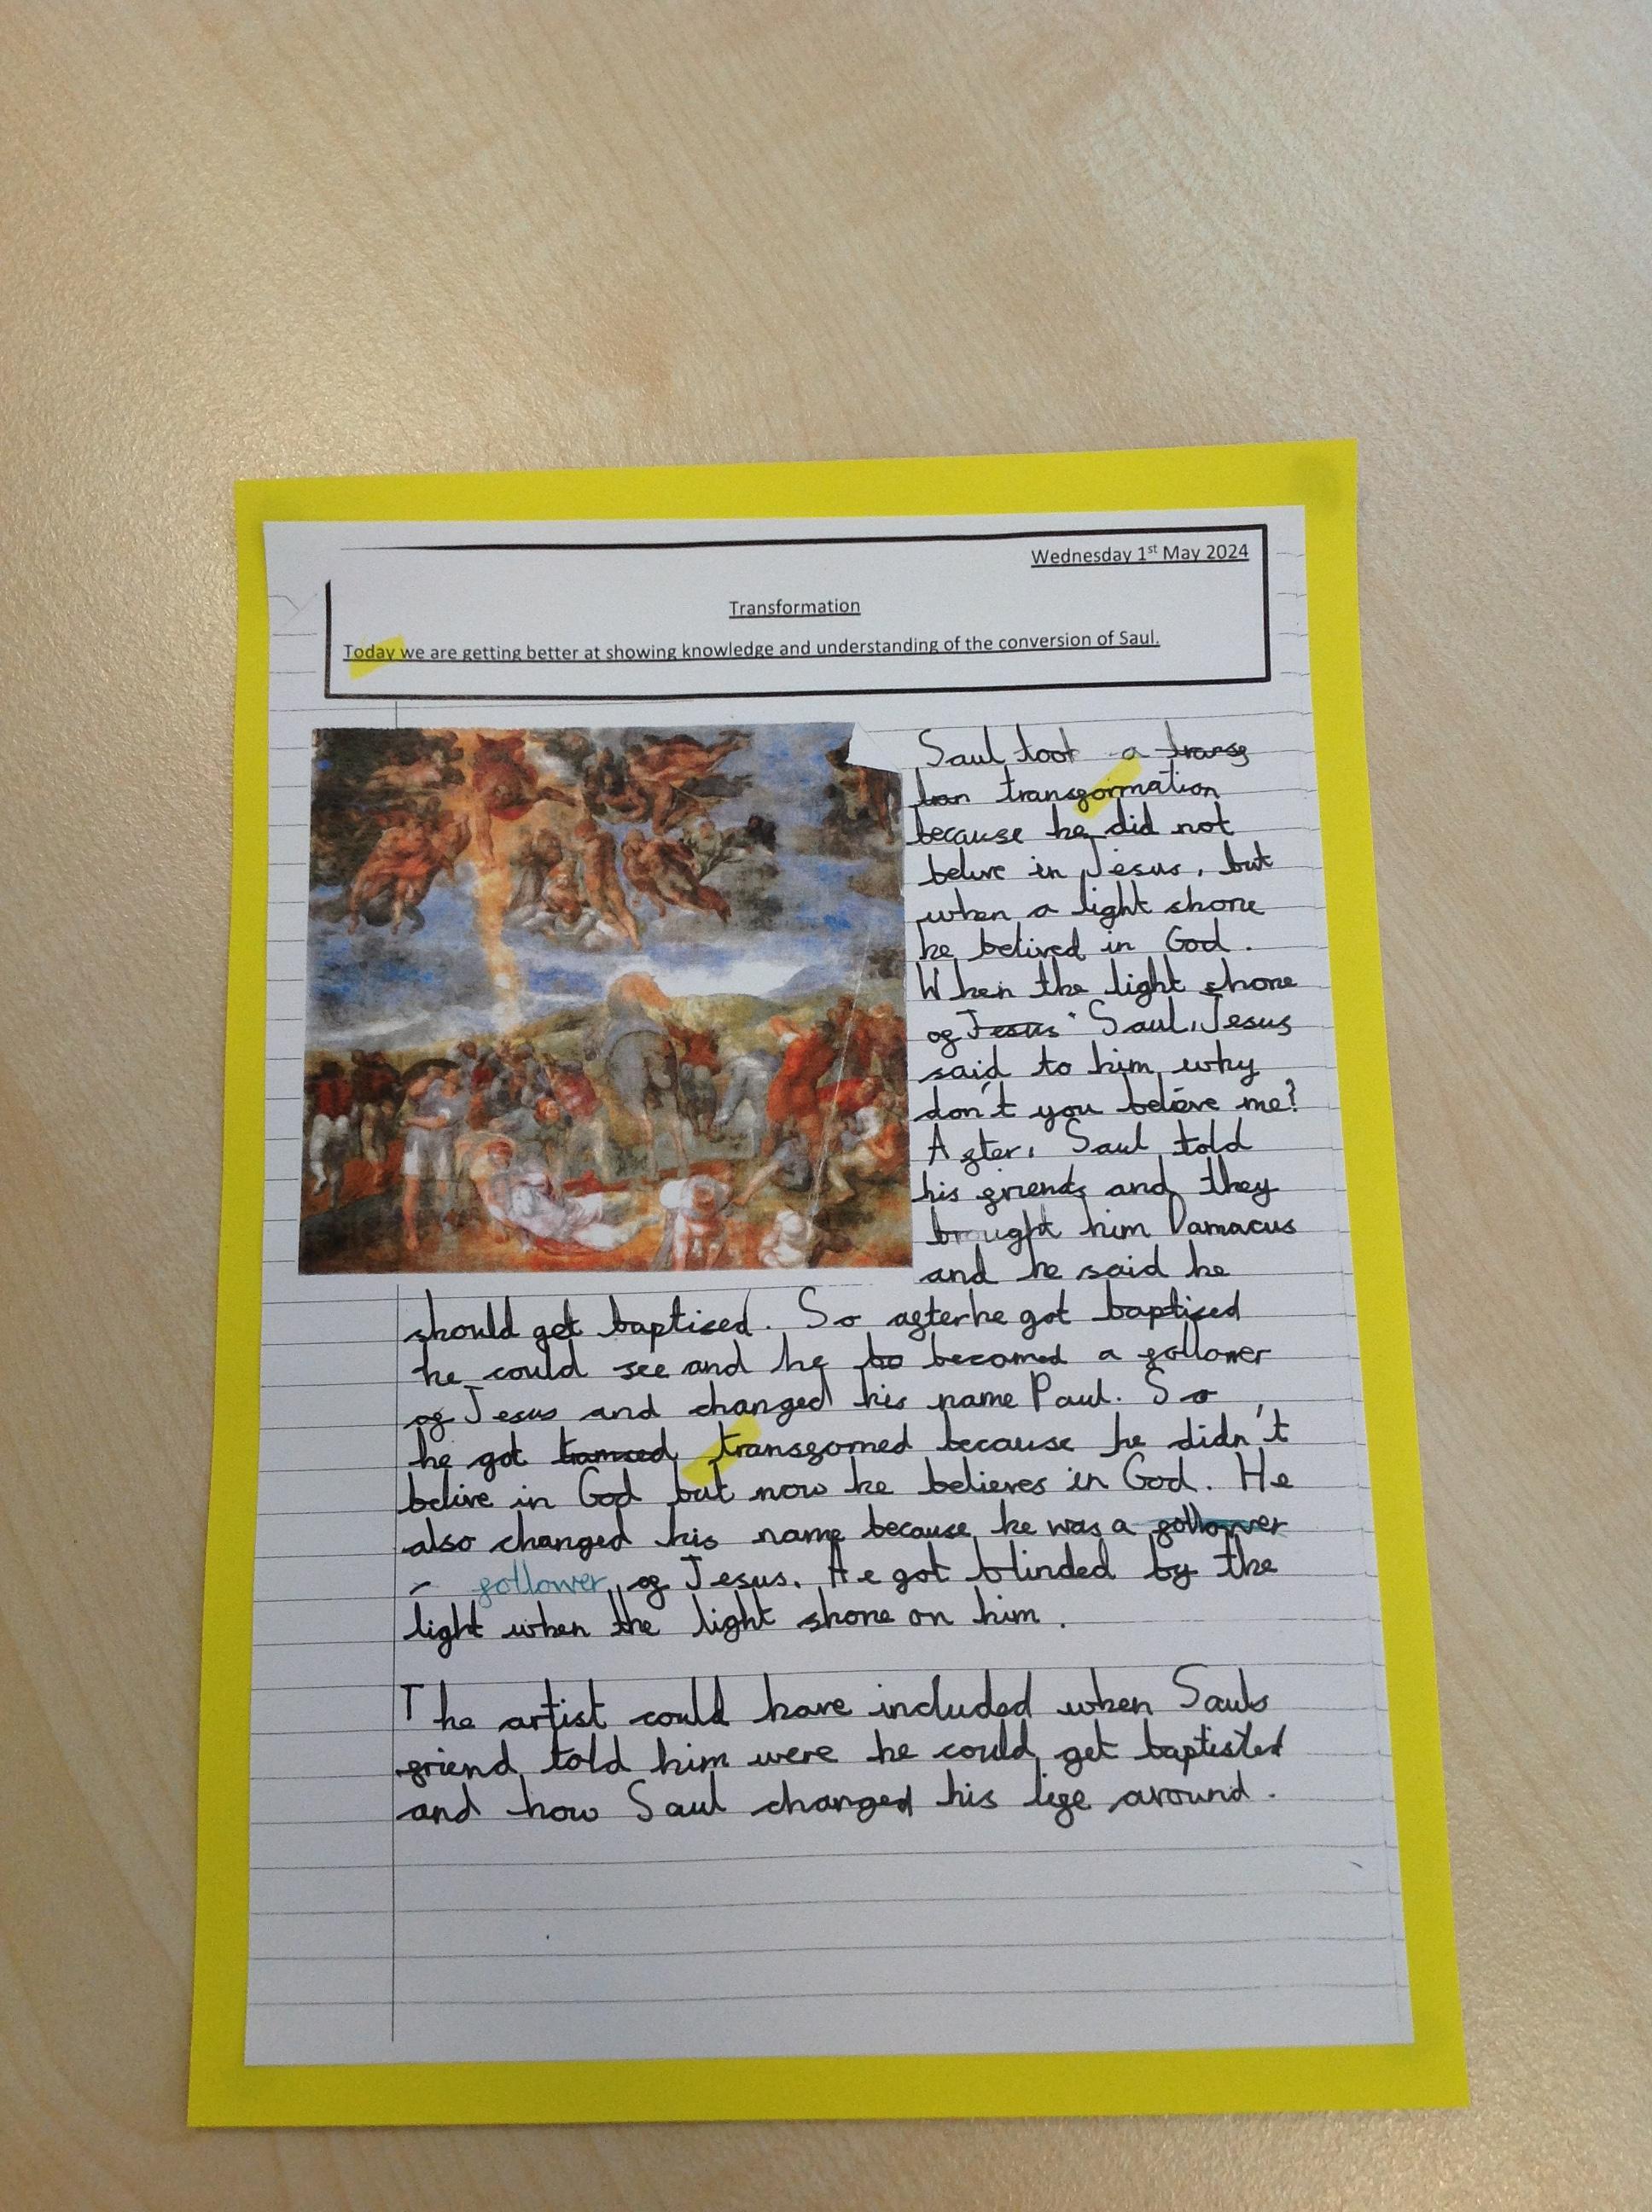 Wednesday 1st May 2024
Transformation
Today we are getting better at showing knowledge and understanding of the conversion of Saul.
Saul toot a transf
tran transformation
because he did not
belive in Jesus, but
when a light shone
he belived in God.
When the light shone
of Jesus Saul, Jesus
said to him why
don't you believe me?
After, Saul told
his friends and they
brought him Damacus
and he said he
should get baptised. So after he got baptised
he could see and he be becomed a follower
of Jesus and changed his name Paul. So
he got transformed because he didn't
belive in God but now he believes in God. He
also changed his name because he was a follower
follower of Jesus. He got blinded by the
light when the light shone on him.
The artist could have included when Sauls
friend told him were he could get baptisted
and how Saul changed his life around.